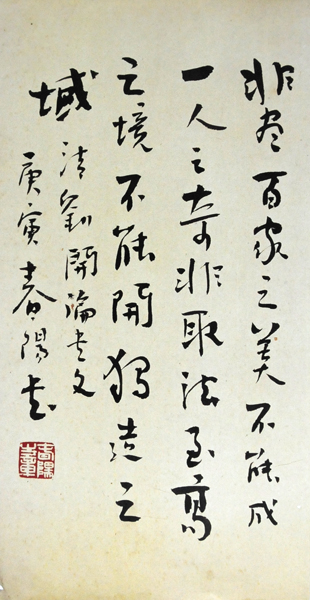 非尽百家之美不能成
一人之奇非取法至高
之境不能開独造之
域 清劉開論書文
庚寅春陽书